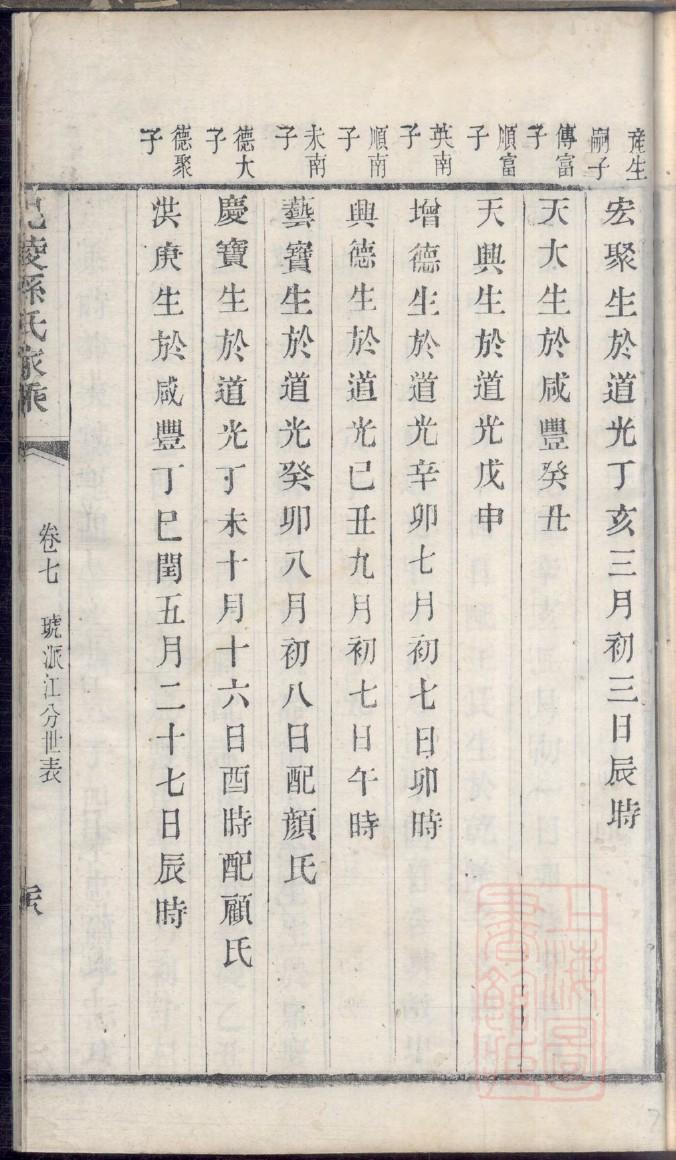 產生嗣子
宏聚生於道光丁亥三月初三日辰時
傳富子
天大生於咸豐癸丑
順富子
天興生於道光戊申
英南子
增德生於道光辛卯七月初七日卯時
順南子
興德生於道光己丑九月初七日午時
未南子
藝寶生於道光癸卯八月初八日配顏氏
德大子
慶寶生於道光丁未十月十六日酉時配顧氏
德聚子
洪庚生於咸豐丁巳閏五月二十七日辰時
陵孫氏家乘
卷七
琥派江分世表
上海圖書館藏